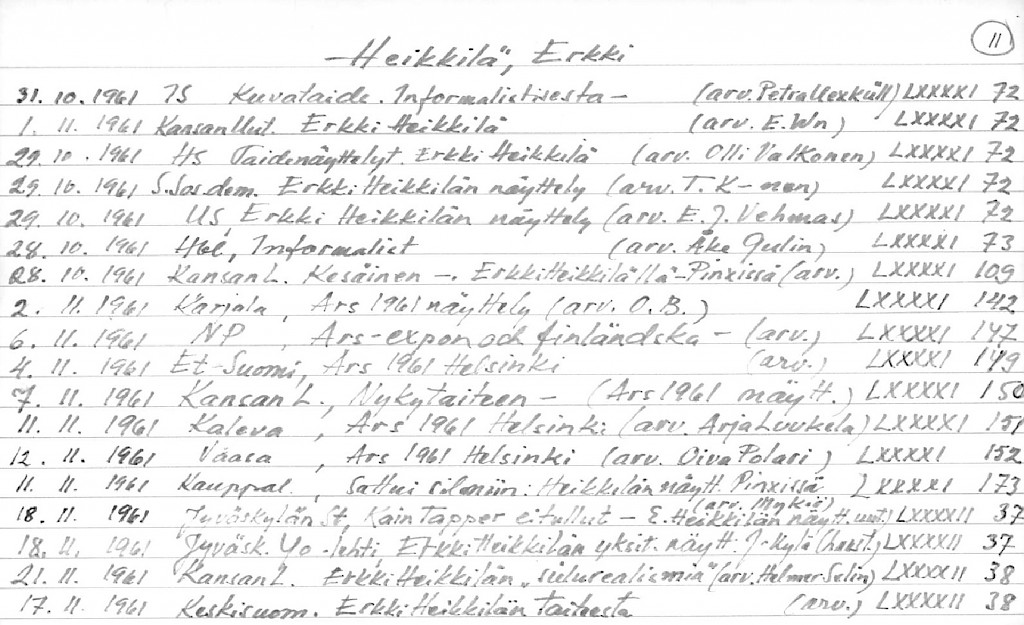 11
Heikkilä, Erkki
31. 10. 1961 IS Kuvataide. Informalistisesta – (arv. Petra Uexküll) LXXXXI 72
1. 11. 1961 Kansan Uut. Erkki Heikkilä (arv. E. Wn) LXXXXI 72
29. 10. 1961 HS Taidenäyttelyt. Erkki Heikkilä (arv. Olli Valkonen) LXXXXI 72
29. 10. 1961 S. Sos. dem. Erkki Heikkilän näyttely (arv. T. K–nen) LXXXXI 72
29. 10. 1961 US, Erkki Heikkilän näyttely (arv. E. J. Vehmas) LXXXXI 72
28. 10. 1961 Hbl, Informalist (arv. Åke Gulin) LXXXXI 73
28. 10. 1961 Kansan L. Kesäinen –. Erkki Heikkilällä – Pinxissä (arv.) LXXXXI 109
2. 11. 1961 Karjala, Ars 1961 näyttely (arv. O. B.) LXXXXI 142
6. 11. 1961 NP, Ars-expon och finländska – (arv.) LXXXXI 147
4. 11. 1961 Et-Suomi, Ars 1961 Helsinki (arv.) LXXXXI 149
7. 11. 1961 Kansan L., Nykytaiteen – (Ars 1961 näytt.) LXXXXI 150
11. 11. 1961 Kaleva, Ars 1961 Helsinki (arv. Arja Luukela) LXXXXI 151
12. 11. 1961 Vaasa, Ars 1961 Helsinki (arv. Oiva Polari) LXXXXI 152
11. 11. 1961 Kauppal., Sattui silmiin: Heikkilän näytt. Pinxissä LXXXXI 173
(arv. Mykiö)
18. 11. 1961 Jyväskylän St, Kain Tapper ei tullut – E. Heikkilän näytt. LXXXXII 37
18. 11. 1961 Jyväsk. Yo-lehti, Erkki Heikkilän yksit. näytt. J-kylä LXXXXII 37
21. 11. 1961 Kansan L. Erkki Heikkilän "sulurealismia" (arv. Helmer Selin) LXXXXII 38
17. 11. 1961 Keskisuom. Erkki Heikkilän taiteesta (arv.) LXXXXII 38